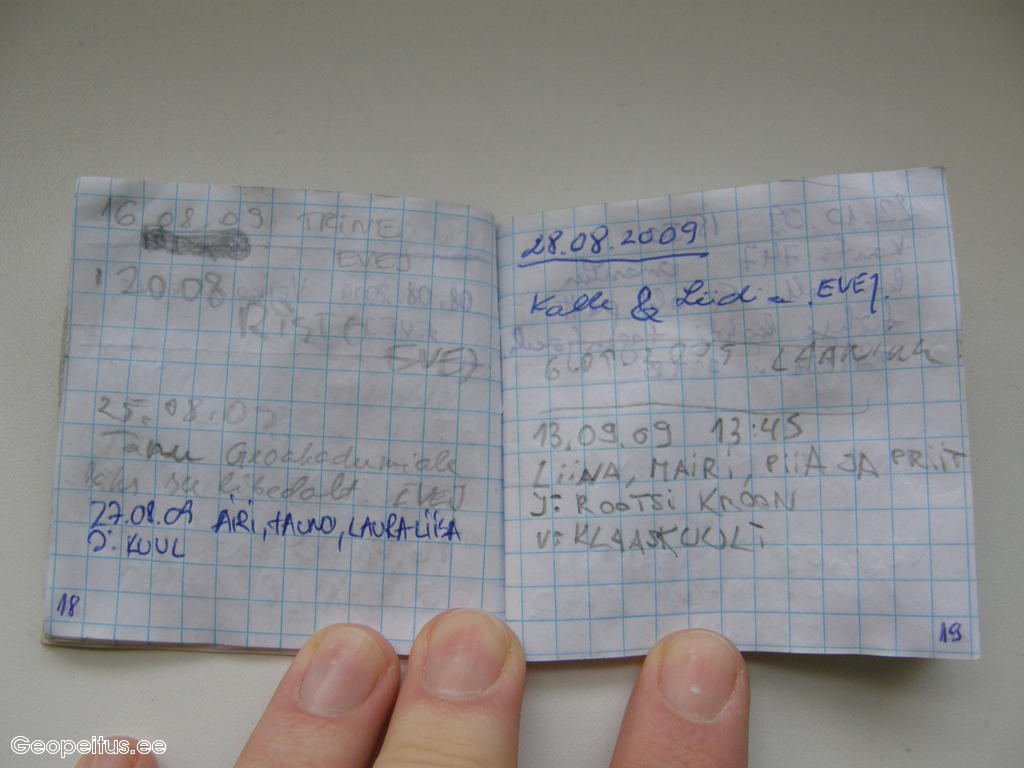 16.08.09 TRINE
EVEJ
20.08
RISTO
EVEJ
25.08.09
Tänu Geoakadeemiale
läks su libedalt. EVEJ
27.08.09 ÄIRI, TAUNO, LAURA-LIISA
J: KUUL
18
28.08.2009
Kalle & Leidi - EVEJ.
LAANIKU
13.09.09 13:45
LIINA, MAIRI, PIIA JA PRIIT
J: ROOTSI KROON
V: KLAASKUULI
19
Geopeitus.ee